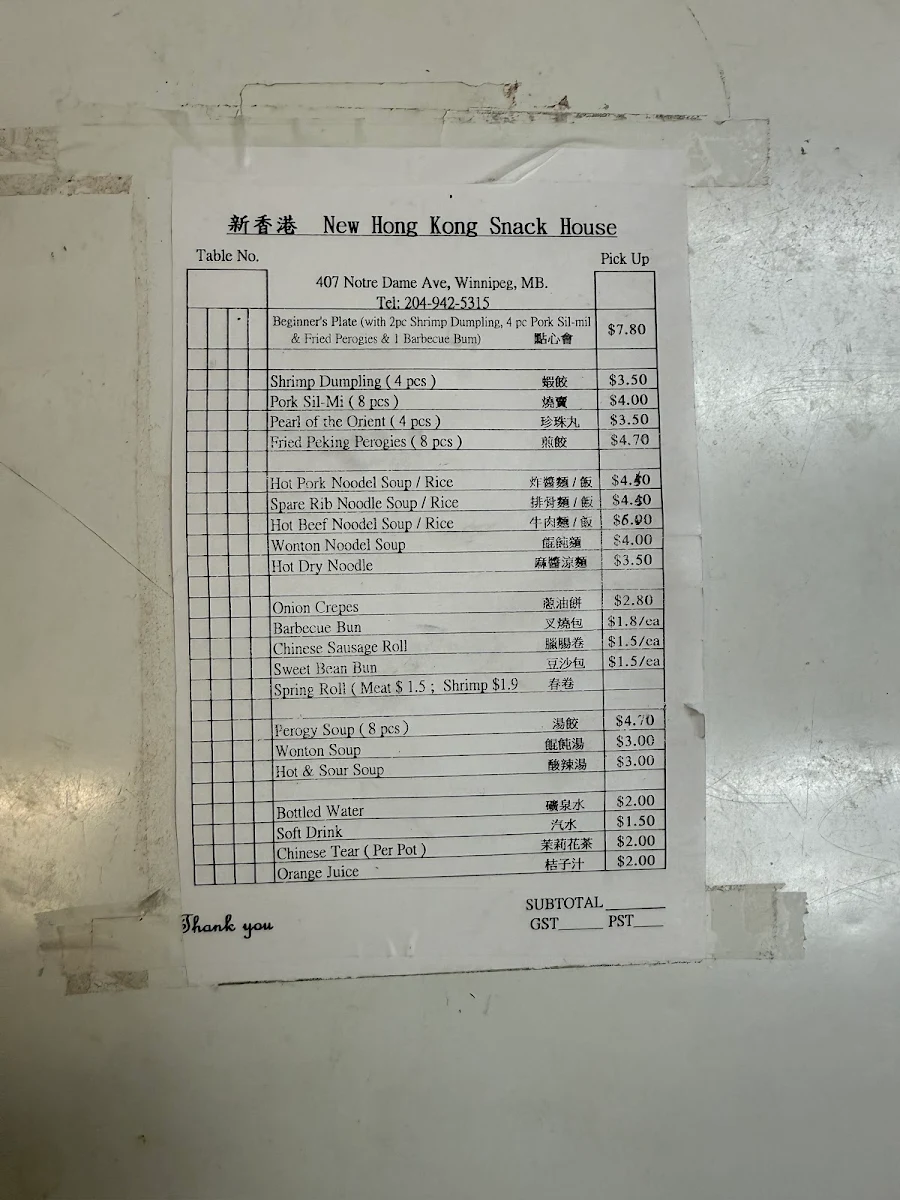 新香港 New Hong Kong Snack House
Table No.
Pick Up
407 Notre Dame Ave, Winnipeg, MB.
Tel: 204-942-5315
Beginner's Plate (with 2pc Shrimp Dumpling, 4 pc Pork Sil-mil
& Fried Perogies & 1 Barbecue Bum) 點心會 $7.80
Shrimp Dumpling ( 4 pcs ) 蝦餃 $3.50
Pork Sil-Mi ( 8 pcs ) 燒賣 $4.00
Pearl of the Orient ( 4 pcs ) 珍珠丸 $3.50
Fried Peking Perogies ( 8 pcs ) 煎餃 $4.70
Hot Pork Noodel Soup / Rice 炸醬麵 / 飯
Spare Rib Noodle Soup / Rice 排骨麵 / 飯
Hot Beef Noodel Soup / Rice 牛肉麵 / 飯 $6.00
Wonton Noodel Soup 餛飩麵 $4.00
Hot Dry Noodle 麻醬涼麵 $3.50
Onion Crepes 蔥油餅 $2.80
Barbecue Bun 叉燒包 $1.8/ea
Chinese Sausage Roll 臘腸卷 $1.5/ea
Sweet Bean Bun 豆沙包 $1.5/ea
Spring Roll ( Meat $ 1.5 ; Shrimp $1.9 春卷
Perogy Soup ( 8 pcs ) 湯餃 $4.70
Wonton Soup 餛飩湯 $3.00
Hot & Sour Soup 酸辣湯 $3.00
Bottled Water 礦泉水 $2.00
Soft Drink 汽水 $1.50
Chinese Tear ( Per Pot ) 茉莉花茶 $2.00
Orange Juice 桔子汁 $2.00
SUBTOTAL
Thank you
GST PST